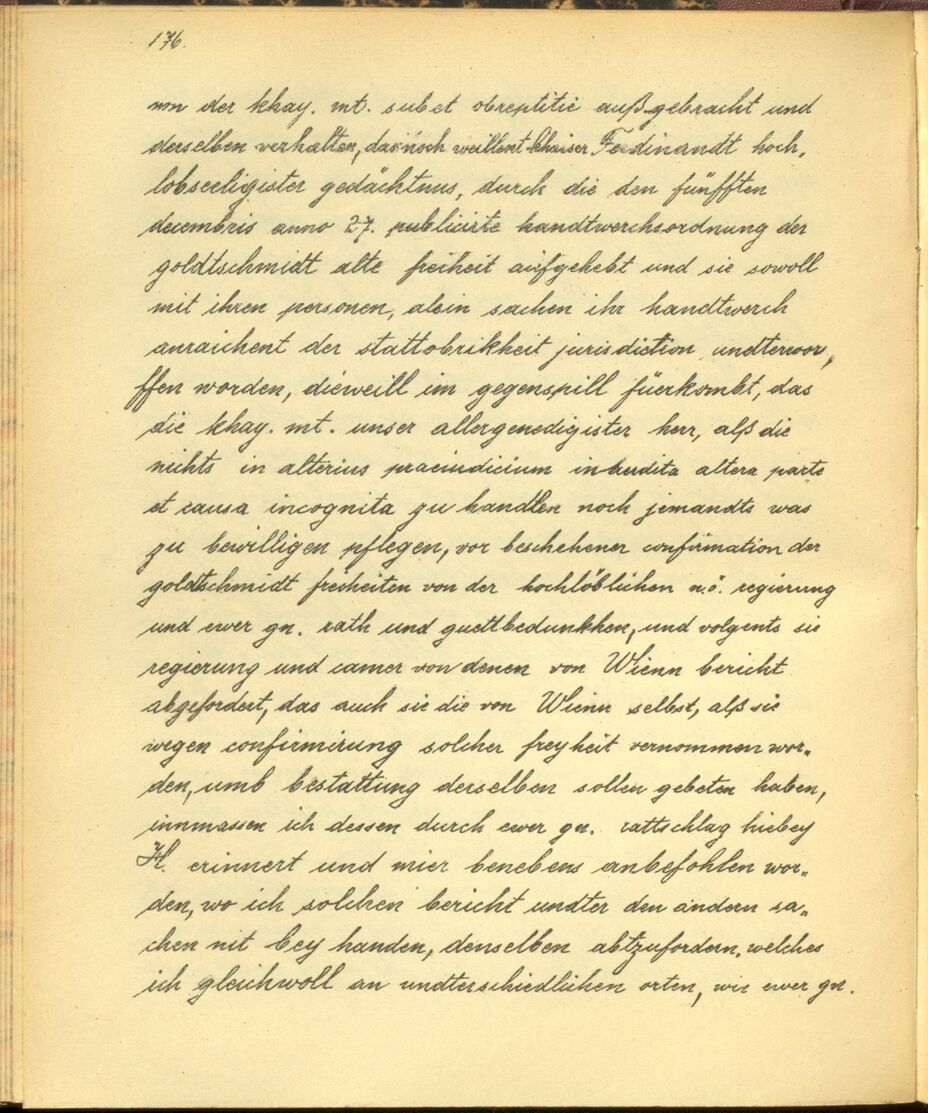 176.
von der khay. mt. sub et obreptitie außgebracht und
derselben verhalten, das noch weillent khaiser Ferdinandt hoch,
lobseeligister gedächtnus, durch die den fünfften
decembris anno 27. publicirte handtwerchsordnung der
goldtschmidt alte freiheit aufgehebt und sie sowoll
mit ihren personen, als in sachen ihr handtwerch
anraichent der stattobrikheit jurisdiction undterwor,
ffen worden, dieweill im gegenspill fürkombt, das
die khay. mt. unser allergenedigister herr, alß die
nichts in alterius praeiudicium inaudita altera parte
et causa incognita zu handlen noch jemandts was
zu bewilligen pflegen, vor beschehener confirmation der
goldtschmidt freiheiten von der hochlöblichen n.ö. regierung
und ewer gn. rath und guettbedunkhen, und volgents sie
regierung und camer von denen von Wienn bericht
abgefordert, das auch sie die von Wienn selbst, alß sie
wegen confirmirung solcher freyheit vernommen wor„
den, umb bestattung derselben sollen gebeten haben,
innmassen ich dessen durch ewer gn. rattschlag hiebey
H. erinnert und mier benebens anbefohlen wor„
den, wo ich solchen bericht undter den andern sa„
chen nit bey handen, denselben abtzufordern, welches
ich gleichwoll an undterschiedlichen orten, wie ewer gn.